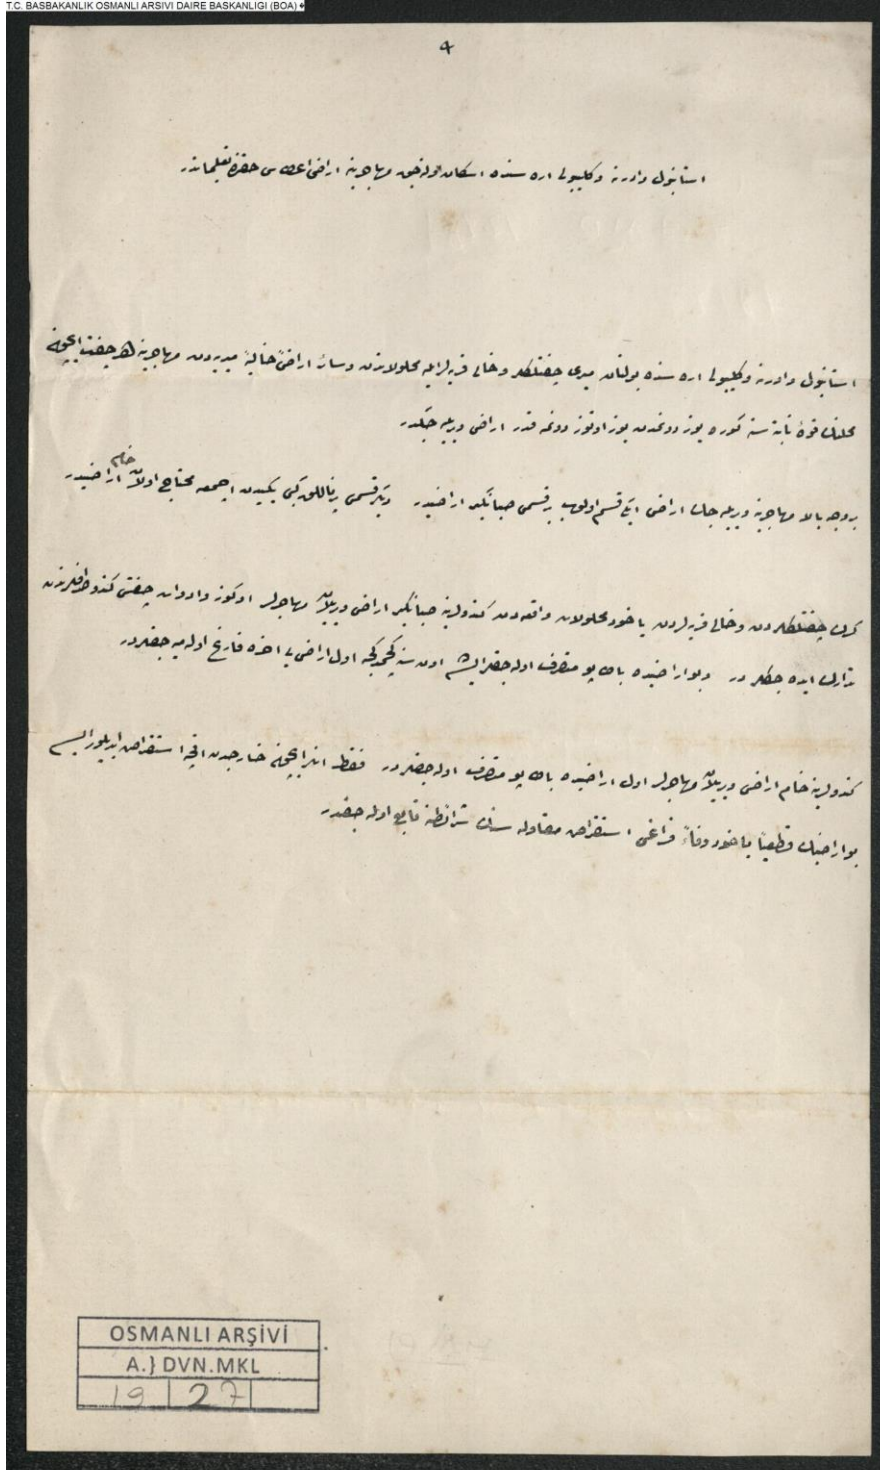 T.C. BASBAKANLIK OSMANLI ARSIVI DAIRE BASKANLIGI (BOA)
٩
استانبول وادرنه وكليبولى اره سنده اسكان اوله جق مهاجرينه اراضى اعطاسى حقنده تعليماتدر
استانبول وادرنه وكليبولى اره سنده بولنان ميرى چفتلكلر وخالى قريه لر ايله محلولاتدن وسائر اراضئ خاليۀ ميريه دن مهاجرينه هر چفت ايچون
محلنك قوۀ نابته سنه كوره يوز دونمدن يوز اوتوز دونمه قدر اراضى ويريله جكدر
بروجه بالا مهاجرينه ويريله جك اراضى ايكى قسم اولوب بر قسمى صبانكير اراضيدر وديكر قسمى يكيدن اچمغه محتاج اولان خام اراضيدر
كرك چفتلكلردن وخالى قريه لردن ياخود محلولات واقعه دن كندولرينه صبانكير اراضى ويريلان مهاجرلر اوكوز وادوات چفتى كندو طرفلرندن
تدارك ايده جكلردر وبو اراضيده باطاپو متصرف اوله جقلر ايسه ده اون سنه كچمدكجه اول اراضى يى اخره فارغ اوله ميه جقلردر
كندولرينه خام اراضى ويريلان مهاجرلر اول اراضيده باطاپو متصرف اوله جقلردر فقط اعمارى ايچون خارجدن اقچه استقراض ايديلور ايسه
بو اراضينك قطعياً ياخود وفاءً فراغى استقراض مقاوله سنك شرائطنه تابع اوله جقدر
OSMANLI ARŞİVİ
A.} DVN.MKL
19 27